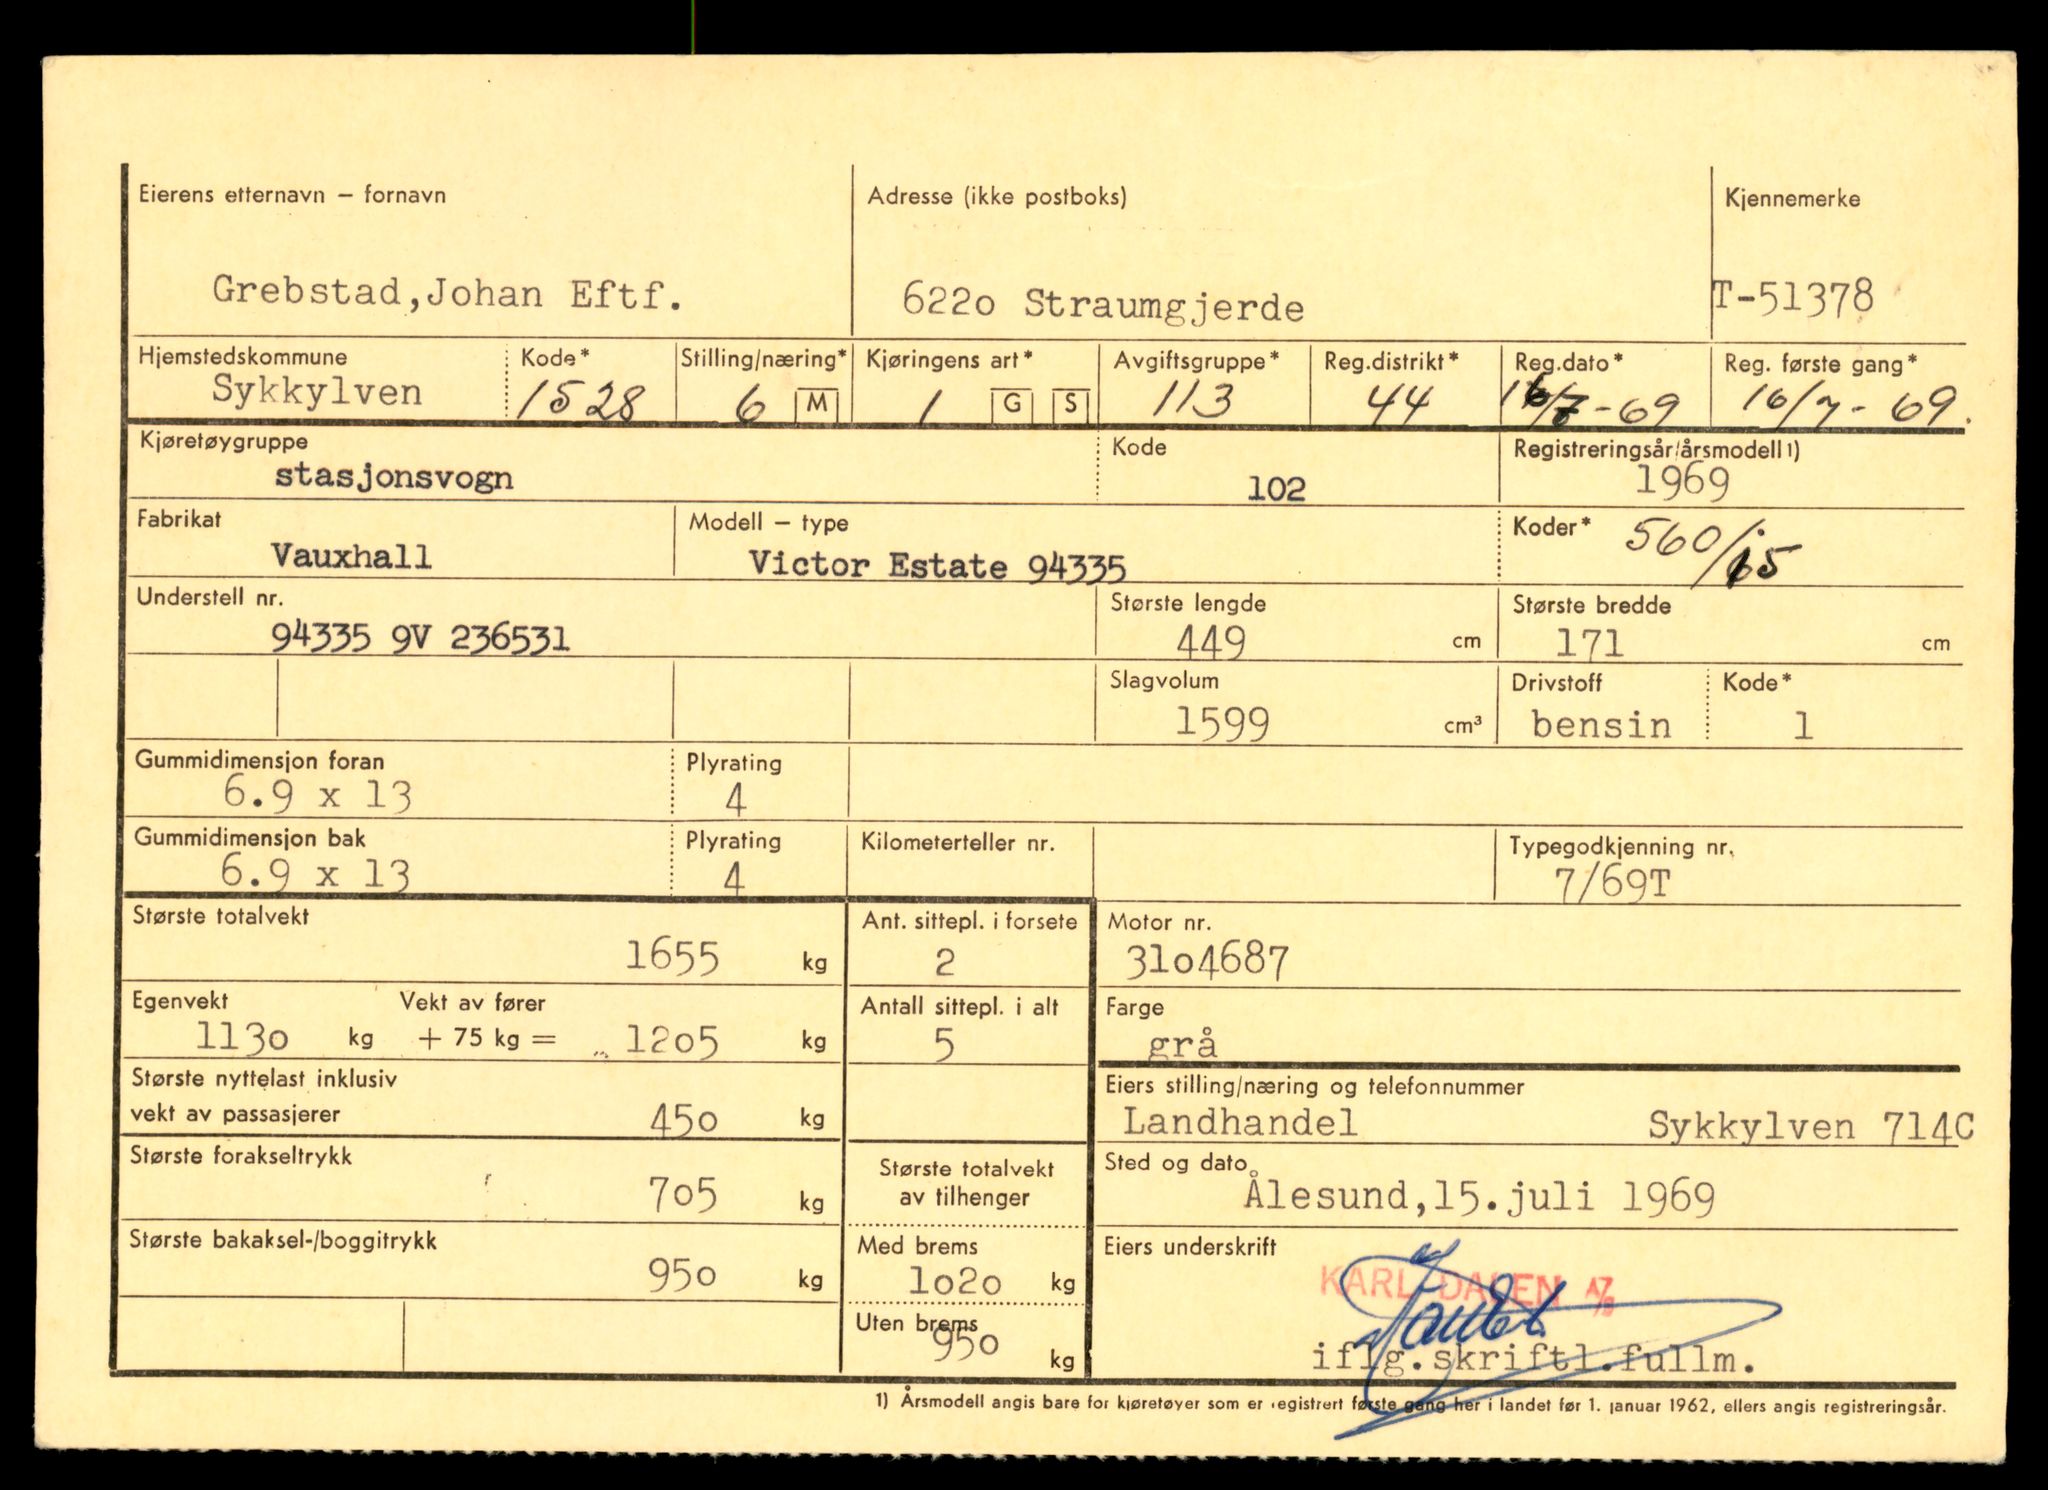 Eierens etternavn – fornavn
Adresse (ikke postboks)
Kjennemerke
Grebstad,Johan Eftf.
6220 Straumgjerde
T-51378
Hjemstedskommune Kode* Stilling/næring* Kjøringens art* Avgiftsgruppe* Reg.distrikt* Reg.dato* Reg. første gang*
Sykkylven 1528 6 M 1 G S 113 44 16/7-69 16/7-69.
Kjøretøygruppe Kode Registreringsår/årsmodell1)
stasjonsvogn 102 1969
Fabrikat Modell – type Koder*
Vauxhall Victor Estate 94335 560/15
Understell nr. Største lengde Største bredde
94335 9V 236531 449 cm 171 cm
Slagvolum Drivstoff Kode*
1599 cm³ bensin 1
Gummidimensjon foran Plyrating
6.9 x 13 4
Gummidimensjon bak Plyrating Kilometerteller nr. Typegodkjenning nr.
6.9 x 13 4 7/69T
Største totalvekt Ant. sittepl. i forsete Motor nr.
1655 kg 2 3104687
Egenvekt Vekt av fører Antall sittepl. i alt Farge
1130 kg + 75 kg = 1205 kg 5 grå
Største nyttelast inklusiv Eiers stilling/næring og telefonnummer
vekt av passasjerer 450 kg Landhandel Sykkylven 714C
Største forakseltrykk Største totalvekt Sted og dato
705 kg av tilhenger Ålesund,15.juli 1969
Største bakaksel-/boggitrykk Med brems Eiers underskrift
950 kg 1020 kg KARL DALEN A/S
Uten brems
950 kg iflg.skriftl.fullm.
1) Årsmodell angis bare for kjøretøyer som er registrert første gang her i landet før 1. januar 1962, ellers angis registreringsår.